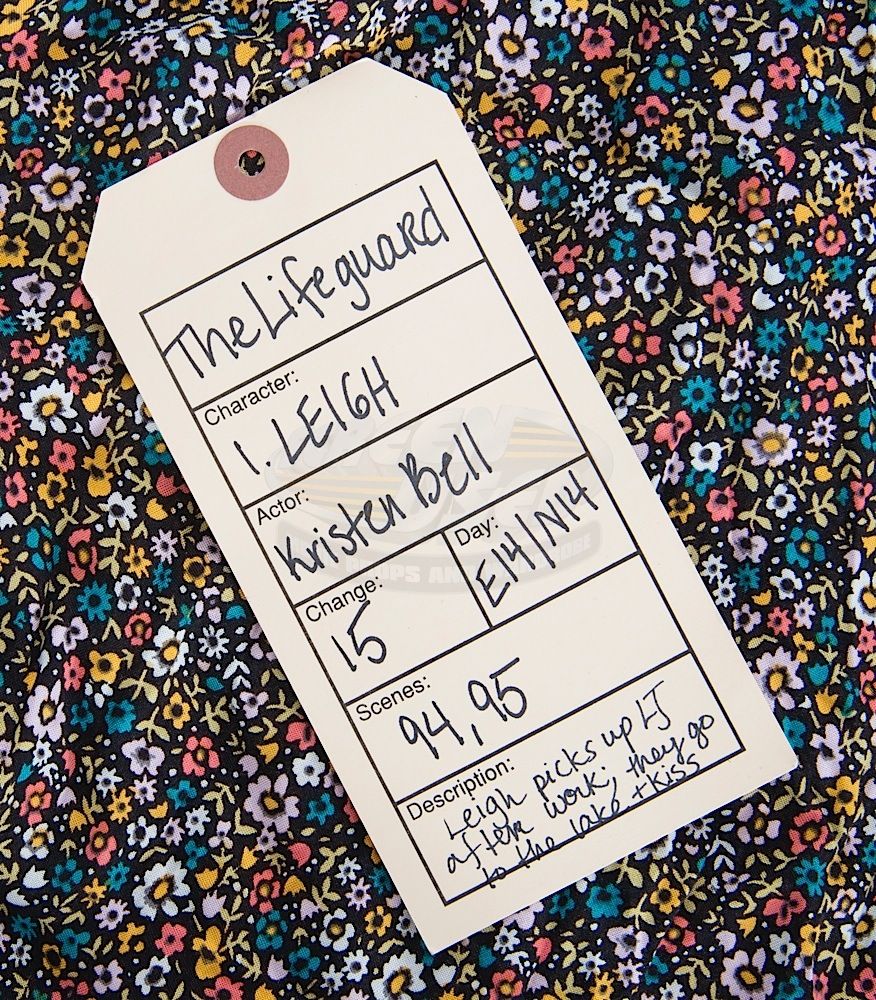 The Lifeguard
Character:
1. LEIGH
Actor:
Kristen Bell
Change:
15
Day:
E14/N14
Scenes:
94, 95
Description:
Leigh picks up LJ
after work; they go
to the lake + kiss